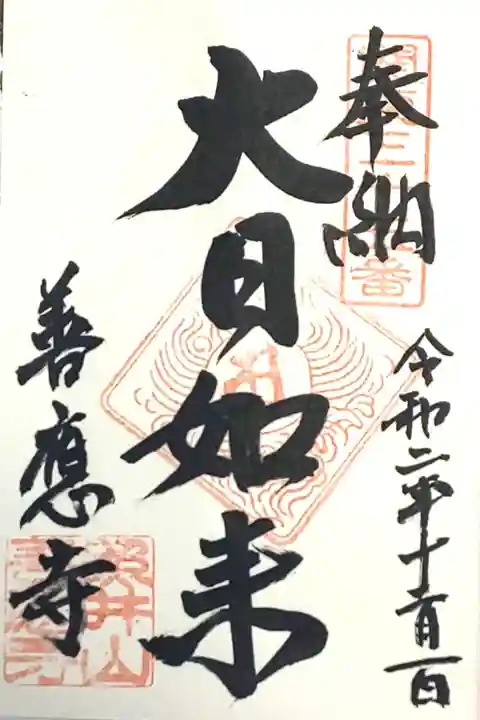 奉納
大日如来
善應寺
令和二年十一月一日